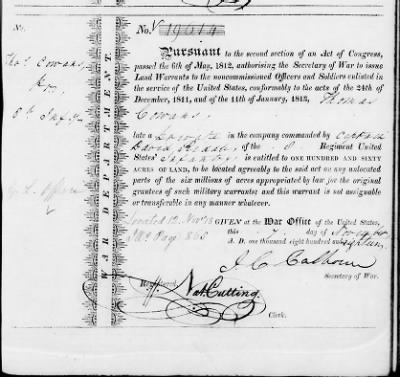 No. 19614
Pursuant to the second section of an Act of Congress,
passed the 6th of May, 1812, authorising the Secretary of War to issue
Land Warrants to the noncommissioned Officers and Soldiers enlisted in
the service of the United States, conformably to the acts of the 24th of
December, 1811, and of the 11th of January, 1813, Thomas
Cowans
late a Private in the company commanded by Captain
David of the 8 Regiment United
States' Infantry is entitled to ONE HUNDRED AND SIXTY
ACRES OF LAND, to be located agreeably to the said act on any unlocated
parts of the six millions of acres appropriated by law for the original
grantees of such military warrants; and this warrant is not assignable
or transferable in any manner whatever.
Located 12 Novr 18
GIVEN at the War Office of the United States,
Page 365
this 7 day of
A. D. one thousand eight hundred and
J. C. Calhoun
Secretary of War.
Nat. Cutting
Clerk.
WAR DEPARTMENT.
Thos. Cowans,
8th Infy